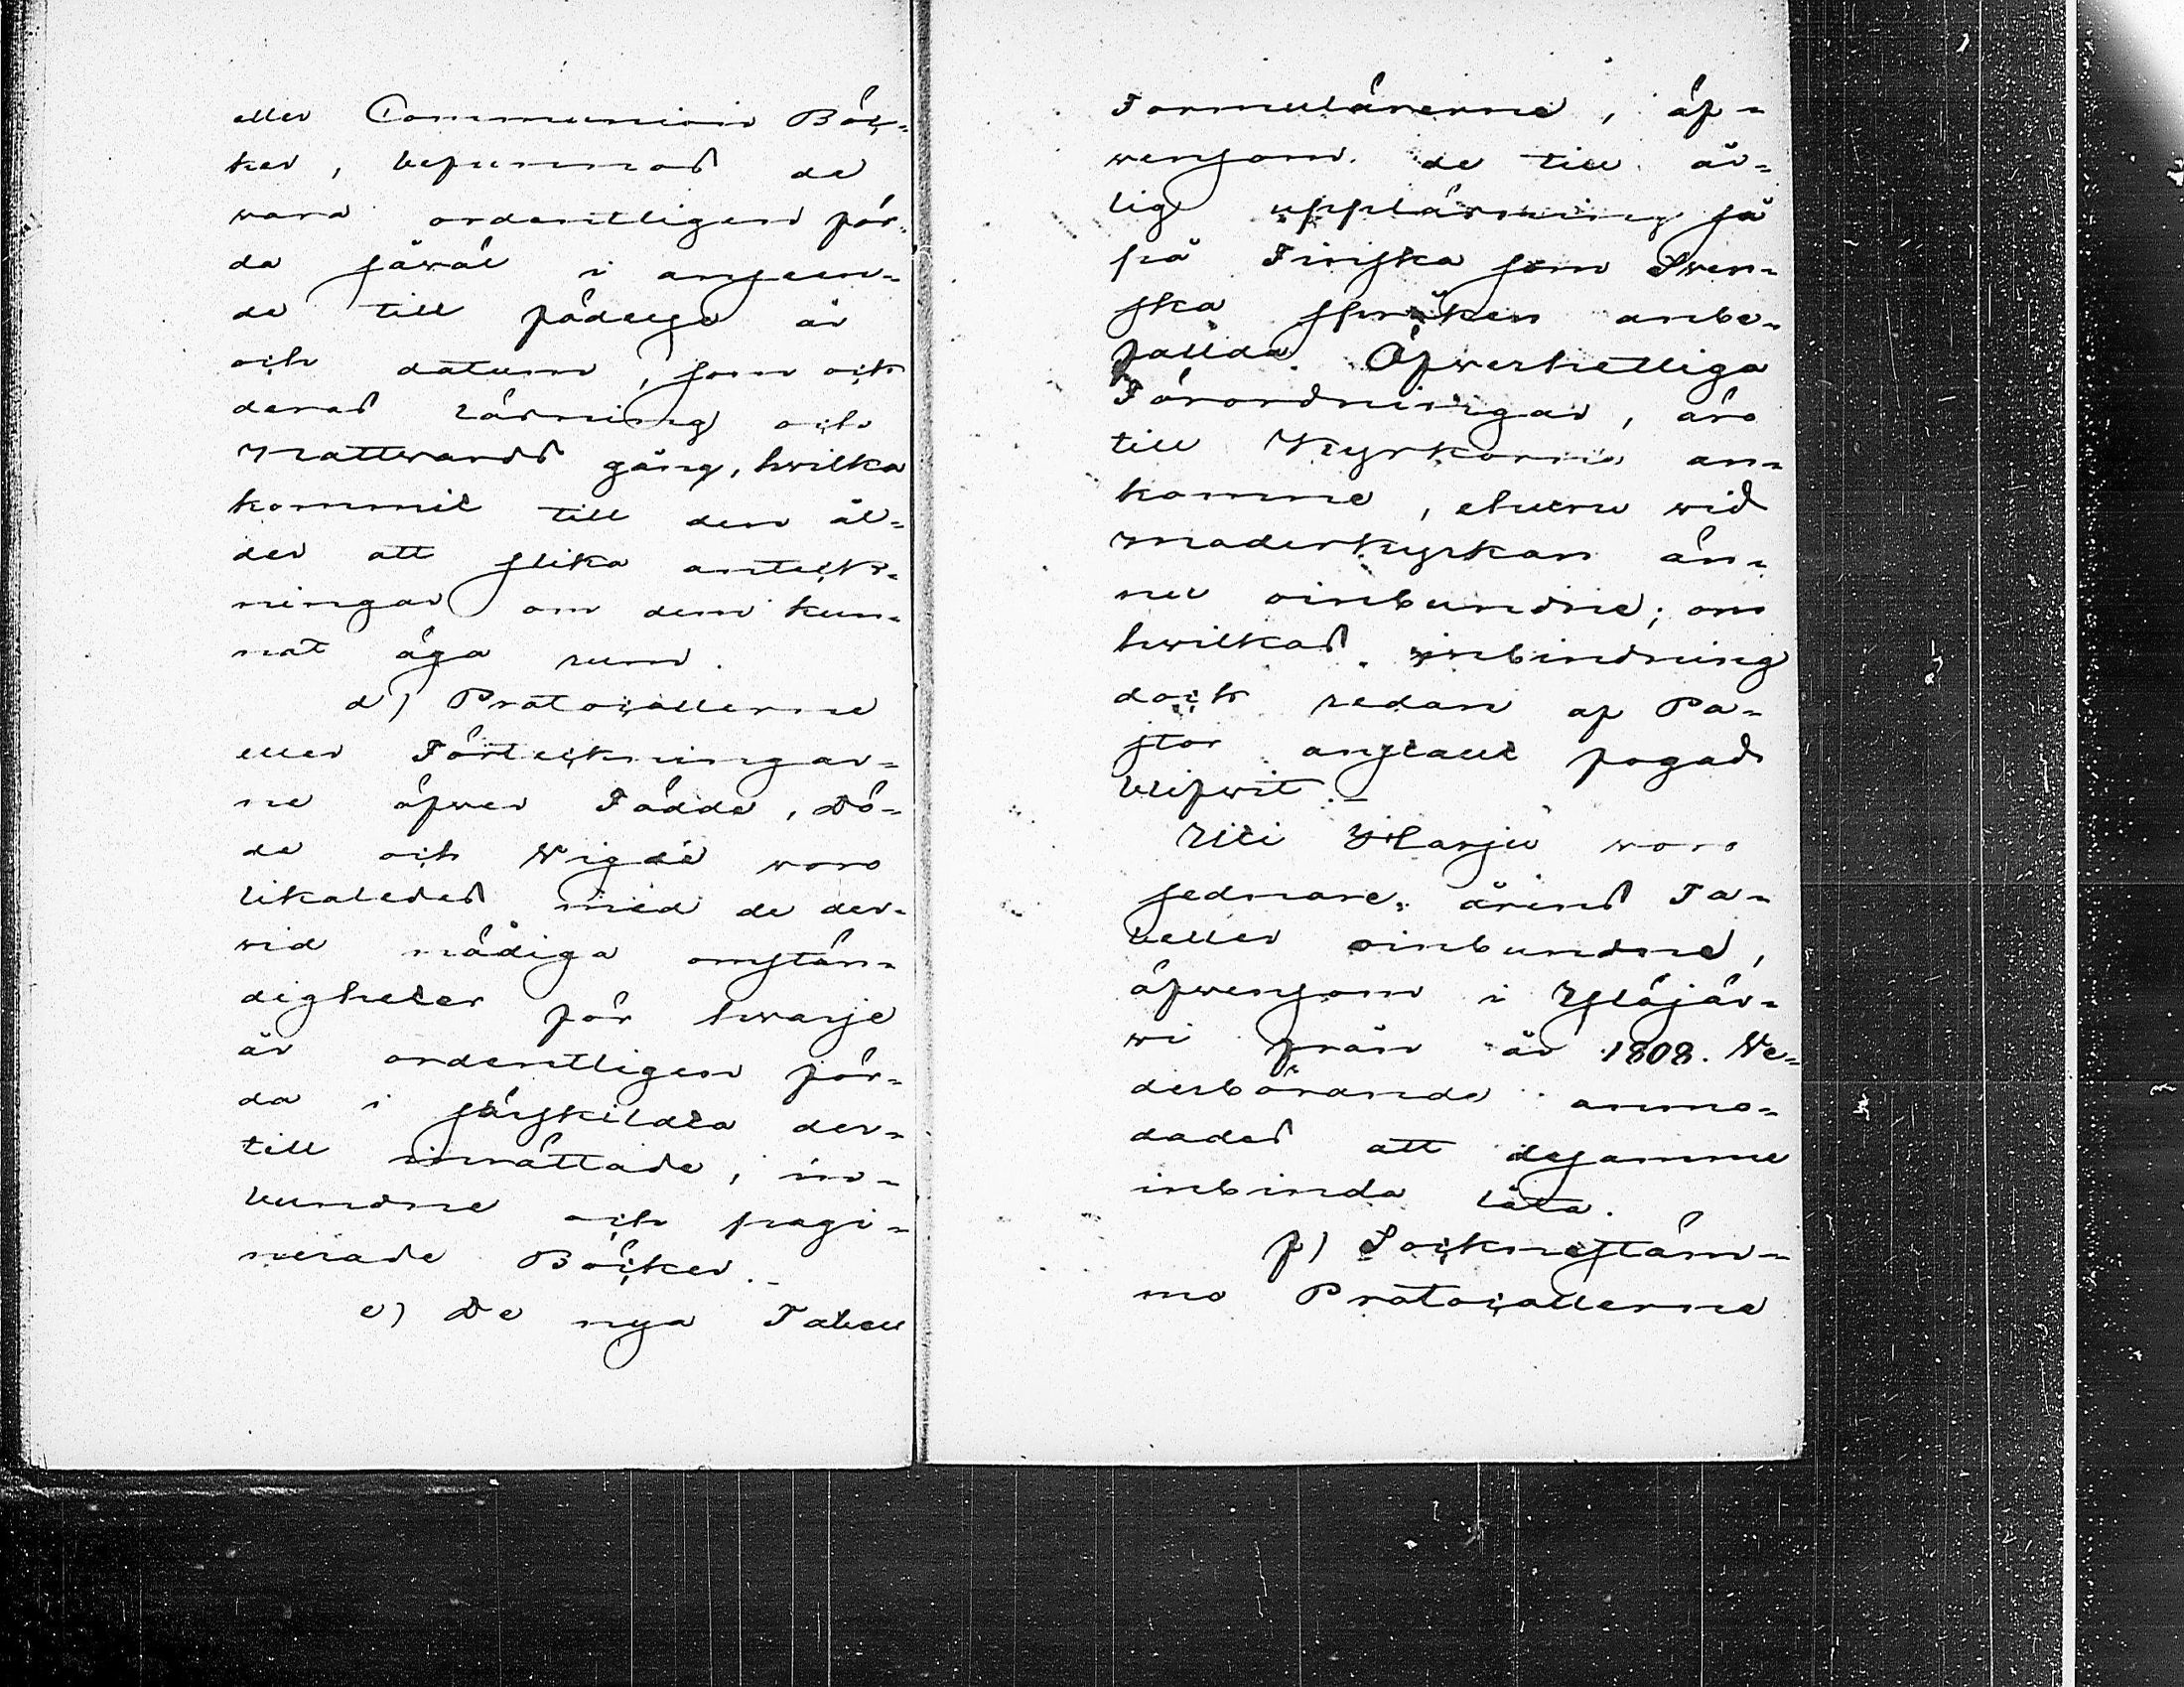 eller Communions Böc-
ker, befunnos de
wara ordentligen för-
da såwäl i anseen-
de till födelse år
och datum, som ock
deras läsning och
Nattwards gång, hwilka
kommit till den ål-
der att slika anteck-
ningar om dem kun-
nat äga rum.
d) Protocollerne
eller Förteckningar-
ne öfwer Födde, Dö-
de och Wigde woro
likaledes med de der-
wid nödiga omstän-
digheter för hwarje
år ordentligen för-
da i särskildta der-
till inrättade, in-
bundne och pagi-
nerade Böcker.-
e) De nya Tabell
Formulärerne, äf-
wensom de till år-
lig uppläsning så
på Finska som Swen-
ska språken anbe-
fallda Öfwerhetliga
Förordningar, äro
till Kyrkorne an-
komne, ehuru wid
Moderkyrkan än-
nu oinbundne; om
hwilkas inbindning
dock redan af Pa-
stor anstalt fogad
blifwit.-
Uti Harju woro
sednare årens Ta-
beller oinbundne,
äfwensom i Ylöjär-
wi från år 1808. We-
derbörande anmo-
dades att desamme
inbinda låta.
f) Sockenstäm-
mo Protocollerne